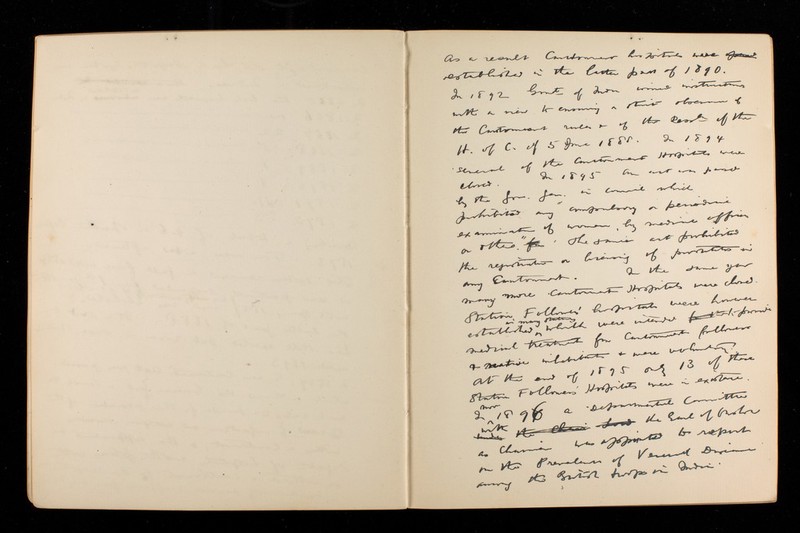 As a result Cantonment hospitals were opened
established in the latter part of 1890.
In 1892 Govt of India issued instructions
with a view to ensuring a strict observance of
the Cantonment rules & of the Resoln of the
H. of C. of 5 June 1888. In 1894
several of the Cantonment Hospitals were
closed. In 1895 an act was passed
by the Gov. Gen. in Council which
prohibited any "compulsory or periodic
examination of women, by medical officers
or others." The same act prohibited
the registration or licensing of prostitutes in
any Cantonment. In the same year
many more Cantonment Hospitals were closed.
Station Followers' hospitals were however
established in many stations which were intended to provide
medical treatment for Cantonment followers
& native inhabitants & were voluntary.
At the end of 1895 only 13 of these
Station Followers' Hospitals were in existence.
In Nov 1896 a Departmental Committee
with the Earl of Onslow
as Chairman was appointed to report
on the Prevalence of Venereal Disease
among the British troops in India.